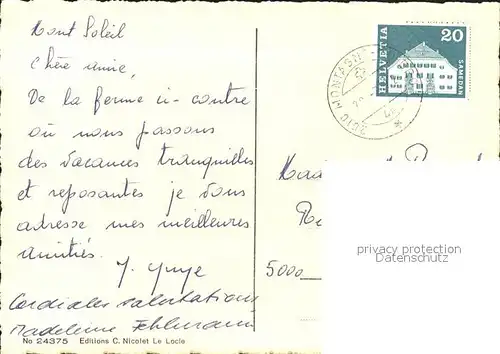 Mont Soleil
Chère amie,
De la ferme ci-contre
où nous passons
des vacances tranquilles
et reposantes je vous
adresse mes meilleures
amitiés.
Cordiales salutations
Madeleine
No 24375 Editions C. Nicolet Le Locle
HELVETIA
20
SAMEDAN
5000
privacy protection
Datenschutz